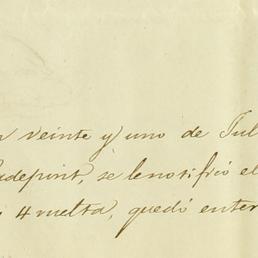 veinte y uno de Jul
se le notifico el
4 vuelta, quedó enter